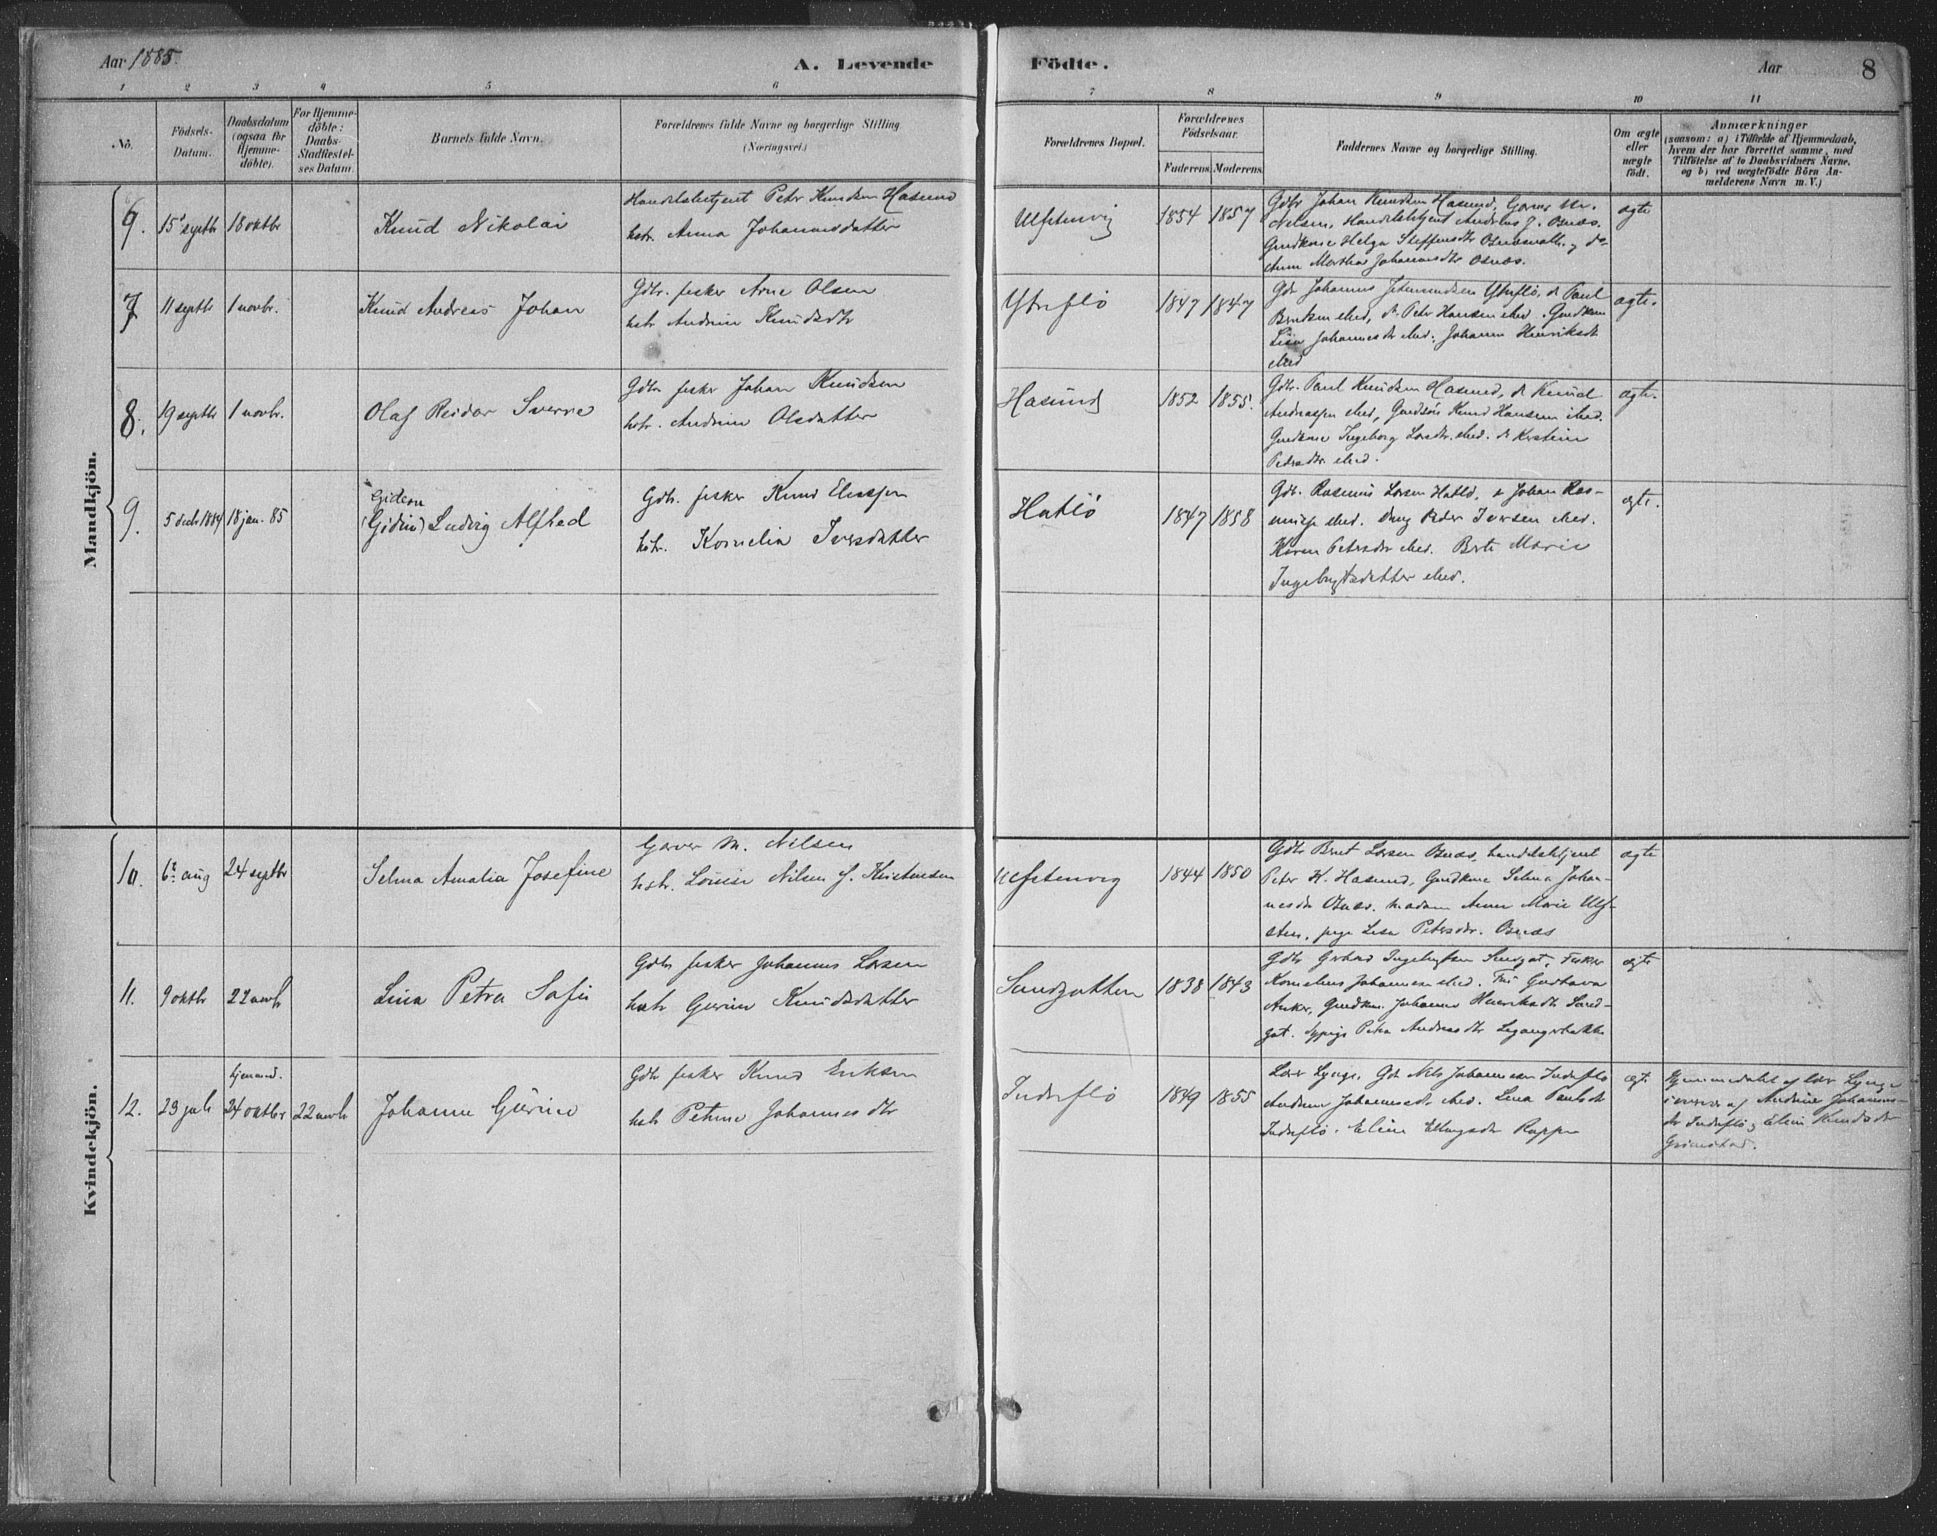 Aar 1885.
A. Levende
Födte.
Aar
8
1
2
3
4
5
6
7
8
9
10
11
No.
Födsels-
Datum.
Daabsdatum
(ogsaa för
Hjemme-
döbte).
For Hjemme-
döbte:
Daabs-
Stadfæstel-
ses Datum.
Barnets fulde Navn.
Forældrenes fulde Navne og borgerlige Stilling
(Næringsvei.)
Forældrenes Bopæl.
Forældrenes
Födselsaar.
Faderens.
Moderens.
Faddernes Navne og borgerlige Stilling.
Om ægte
eller
uægte
födt.
Anmærkninger
(saasom: a) i Tilfælde af Hjemmedaab,
hvem der har forrettet samme, med
Tilföielse af to Daabsvidners Navne,
og b) ved uægtefödte Börn An-
melderens Navn m. V.)
Mandkjön.
6.
15 septbr
18 oktbr
Knud Nikolai
Handelsbetjent Peter Knudsen Hasund
hstr. Anna Johannesdatter
Ulfstenvig
1854
1857
Gdbr Johan Knudsen Hasund, Garver M.
Nilsen, Handelsbetjent Andreas J. Osnæs.
Gmdkone Helga Steffensdtr
Anne Marthe Johannesdtr Osnæs.
ægte
7.
11 septbr
1 novbr.
Knud Andreas Johan
Gdbr. fisker Arne Olsen
hstr Andrine Knudsdtr
Ytreflö
1847
1847
Gdr Johannes Ytreflö, dr Paul
sted, dr. Peter Hansen sted. Gmdkone
Lisa Johannesdtr sted. Johanne Henriksdtr
sted
ægte.
8.
19 septbr
1 novbr.
Olaf Reidar Sverre
Gdbr fisker Johan Knudsen
hstr. Andrine Olsdatter
Hasund
1852
1855.
Gdbr. Paul Knudsen Hasund, dr Knud
Andreassen sted, Gmdsön Knud Hansen sted.
Gmdkone Ingeborg Larsdtr. sted. dr Kirstine
Pedersdtr sted.
ægte.
9.
5 decb 1884
18 jan. 85
Gideon
(Gidion) Ludvig Alfred
Gdb. fisker Knud Eliassen
hstr. Kornelia Iversdatter
Hatlö
1847
1858
Gdb. Rasmus Larsen Hatlö, dr Johan Ras-
mussen sted. Ung Peder Iversen sted.
Karen Petersdtr sted. Berte Marie
Ingebrigtsdatter sted.
ægte.
Kvindekjön.
10.
6te aug
24 septbr
Selma Amalia Josefine
Garver M. Nilsen
hstr. Louise Nilsen f. Kristensen
Ulfstenvig
1844
1850
Gdbr Bent Larsen Osnæs, handelsbetjent
Peter K. Hasund, Gmdkone Selma Johan-
nesdtr Osnæs. madam Anne Marie Ulf-
sten, pige Lisa Petersdtr. Osnæs
ægte
11.
9 oktbr
22 novbr
Lina Petra Sofie
Gdbr fisker Johannes Larsen
hstr Gurine Knudsdatter
Sundgotten
1838
1843
Gdbr Ingebrigtsen Sundgot, Fisker
Kornelius Johannesen sted. Gustava
Anker, Gmdkone Johanne Henriksdtr Sund-
got. Petra Andreasdtr
ægte
12.
23 juli
hjemmed.
24 oktbr
22 novbr
Johanne Gurine
Gdbr fisker Knud Eriksen
hstr Petrine Johannesdtr
Indreflö
1849
1855
Lærer Lynge, Gdr Nils Johannesen Indreflö
Andrine Johannesdtr sted. Lina Paulsdtr
Indreflö. Eline Ellingsdtr Rappen
ægte
Hjemmedöbt af lær. Lynge
af Andrine Johannes-
dtr Indreflö og Eline Knudsdtr
Grimstad.